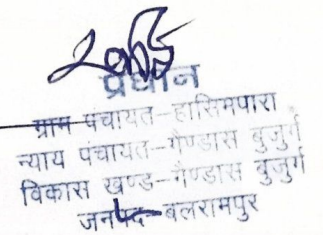 प्रधान
ग्राम पंचायत-हासिमपारा
न्याय पंचायत-गैण्डास बुजुर्ग
विकास खण्ड-गैण्डास बुजुर्ग
जनपद-बलरामपुर